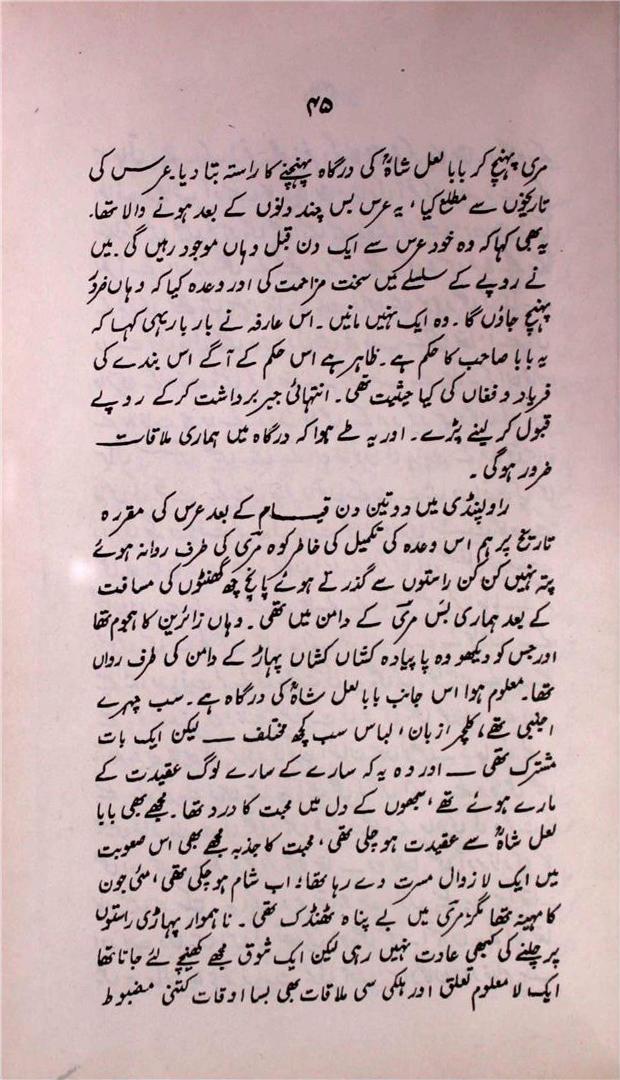 ۴۵
مری پہنچ کر بابا لعل شاہؒ کی درگاہ پہنچنے کا راستہ بتا دیا۔ عرس کی
تاریخوں سے مطلع کیا، یہ عرس بس چند دنوں کے بعد ہونے والا تھا۔
یہ بھی کہا کہ وہ خود عرس سے ایک دن قبل وہاں موجود رہیں گی۔ میں
نے روپے کے سلسلے میں سخت مزاحمت کی اور وعدہ کیا کہ وہاں ضرور
پہنچ جاؤں گا۔ وہ ایک نہیں مانیں۔ اس عارفہ نے بار بار یہی کہا کہ
یہ بابا صاحب کا حکم ہے۔ ظاہر ہے اس حکم کے آگے اس بندے کی
فریاد و فغاں کی کیا حیثیت تھی۔ انتہائی جبر برداشت کرکے روپے
قبول کر لینے پڑے۔ اور یہ طے ہوا کہ درگاہ میں ہماری ملاقات
ضرور ہوگی۔
راولپنڈی میں دو تین دن قیام کے بعد عرس کی مقررہ
تاریخ پر ہم اس وعدہ کی تکمیل کی خاطر کوہ مری کی طرف روانہ ہوئے
پتہ نہیں کن کن راستوں سے گذرتے ہوئے پانچ چھ گھنٹوں کی مسافت
کے بعد ہماری بس مری کے دامن میں تھی۔ وہاں زائرین کا ہجوم تھا
اور جس کو دیکھو وہ پاپیادہ کشاں کشاں پہاڑ کے دامن کی طرف رواں
تھا۔ معلوم ہوا اس جانب بابا لعل شاہؒ کی درگاہ ہے۔ سب چہرے
اجنبی تھے، کلچر، زبان، لباس سب کچھ مختلف — لیکن ایک بات
مشترک تھی — اور وہ یہ کہ سارے کے سارے لوگ عقیدت کے
مارے ہوئے تھے، سبھوں کے دل میں محبت کا درد تھا۔ مجھے بھی بابا
لعل شاہؒ سے عقیدت ہو چلی تھی، محبت کا جذبہ مجھے بھی اس صعوبت
میں ایک لازوال مسرت دے رہا تھا؛ اب شام ہو چکی تھی، مئی جون
کا مہینہ تھا مگر مری میں بے پناہ ٹھنڈک تھی۔ ناہموار پہاڑی راستوں
پر چلنے کی کبھی عادت نہیں رہی لیکن ایک شوق مجھے کھینچے لئے جاتا تھا
ایک لامعلوم تعلق اور ہلکی سی ملاقات بھی بسا اوقات کتنی مضبوط